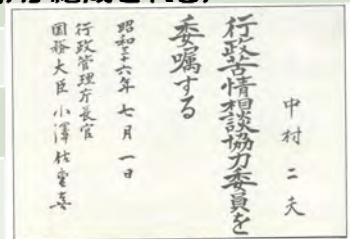 中村二夫
行政苦情相談協力委員を
委嘱する
昭和三十六年七月一日
行政管理庁長官
国務大臣 小澤佐重喜